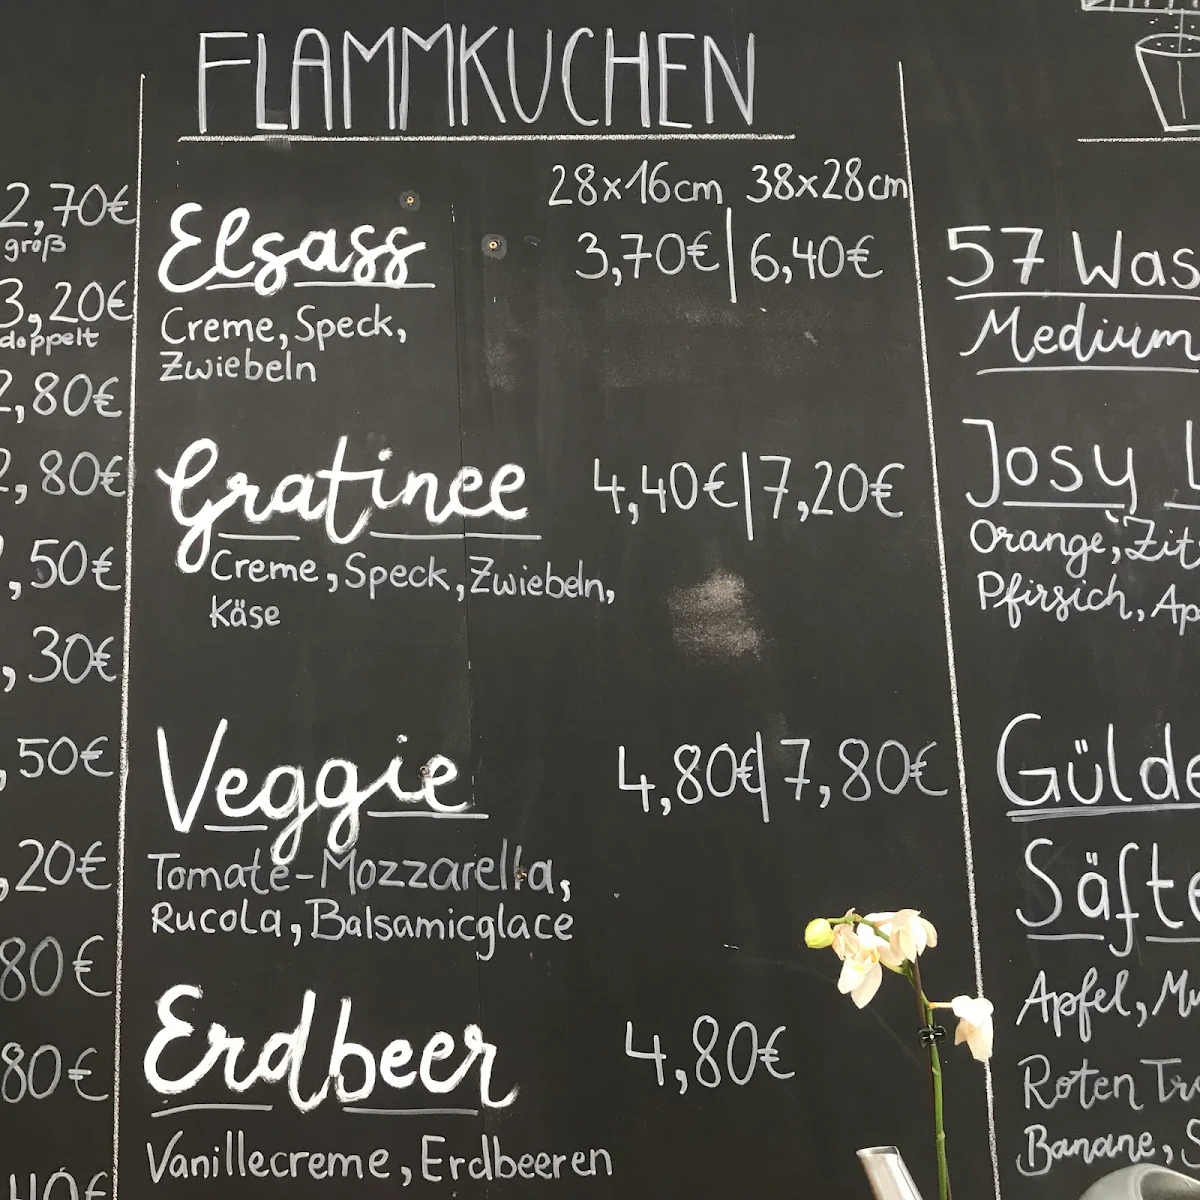 2,70€
groß
3,20€
doppelt
2,80€
2,80€
,50€
,30€
,50€
,20€
80€
80€
40€
FLAMMKUCHEN
28x16cm 38x28cm
Elsass 3,70€|6,40€
Creme, Speck,
Zwiebeln
Gratinee 4,40€|7,20€
Creme, Speck, Zwiebeln,
Käse
Veggie 4,80€|7,80€
Tomate-Mozzarella,
Rucola, Balsamicglace
Erdbeer 4,80€
Vanillecreme, Erdbeeren
57 Was
Medium
Josy L
Orange, Zit
Pfirsich, Ap
Gülde
Säfte
Apfel, Mu
Roten Tr
Banane, S